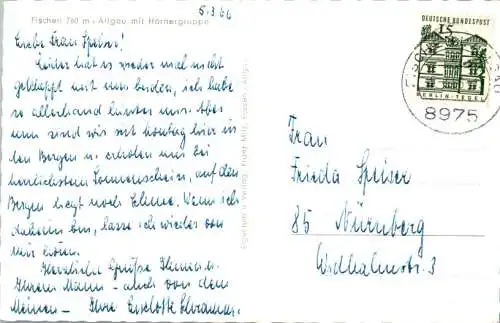 5.3.66
Fischen 760 m · Allgäu mit Hörnergruppe
Liebe Frau Speiser!
Leider hat es wieder mal nicht
geklappt mit uns beiden, ich habe
so allerhand hinter mir. Aber
nun sind wir seit Montag hier in
den Bergen u. erholen uns bei
herrlichstem Sonnenschein, auf den
Bergen liegt noch Schnee. Wenn ich
daheim bin, lasse ich wieder von
mir hören.
Herzliche Grüße Ihnen u.
Ihrem Mann – auch von dem
Meinen – Ihre Liselotte
DEUTSCHE BUNDESPOST
15
BERLIN-TEGEL
8975
Frau
Frieda Speiser
85 Nürnberg
Widhalmstr. 3